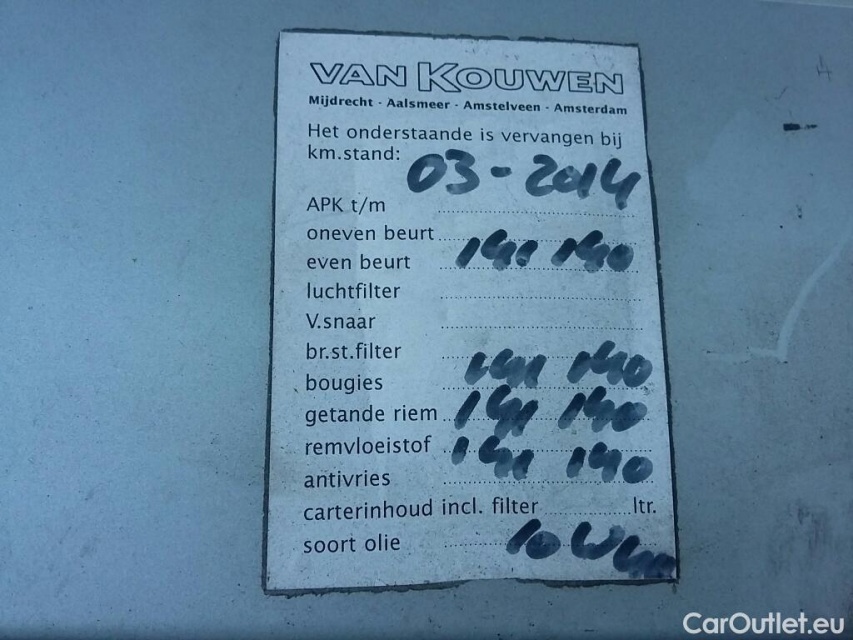 VAN KOUWEN
Mijdrecht - Aalsmeer - Amstelveen - Amsterdam
Het onderstaande is vervangen bij
km.stand: 03-2014
APK t/m
oneven beurt
even beurt 141 140
luchtfilter
V.snaar
br.st.filter
bougies 141 140
getande riem 141 140
remvloeistof 141 140
antivries
carterinhoud incl. filter ltr.
soort olie 10W40
CarOutlet.eu